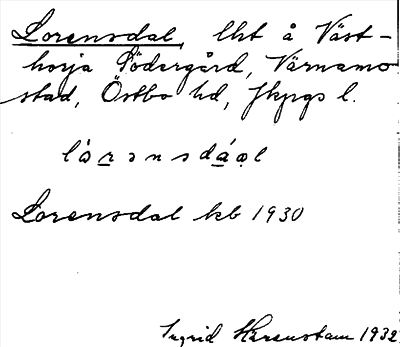 Lorensdal, lht å Väst-
horja Södergård, Värnamo
stad, Östbo hd, Jkpgs l.
lòrənsdáal
Lorensdal kb 1930
Ingrid Härenstam 1932